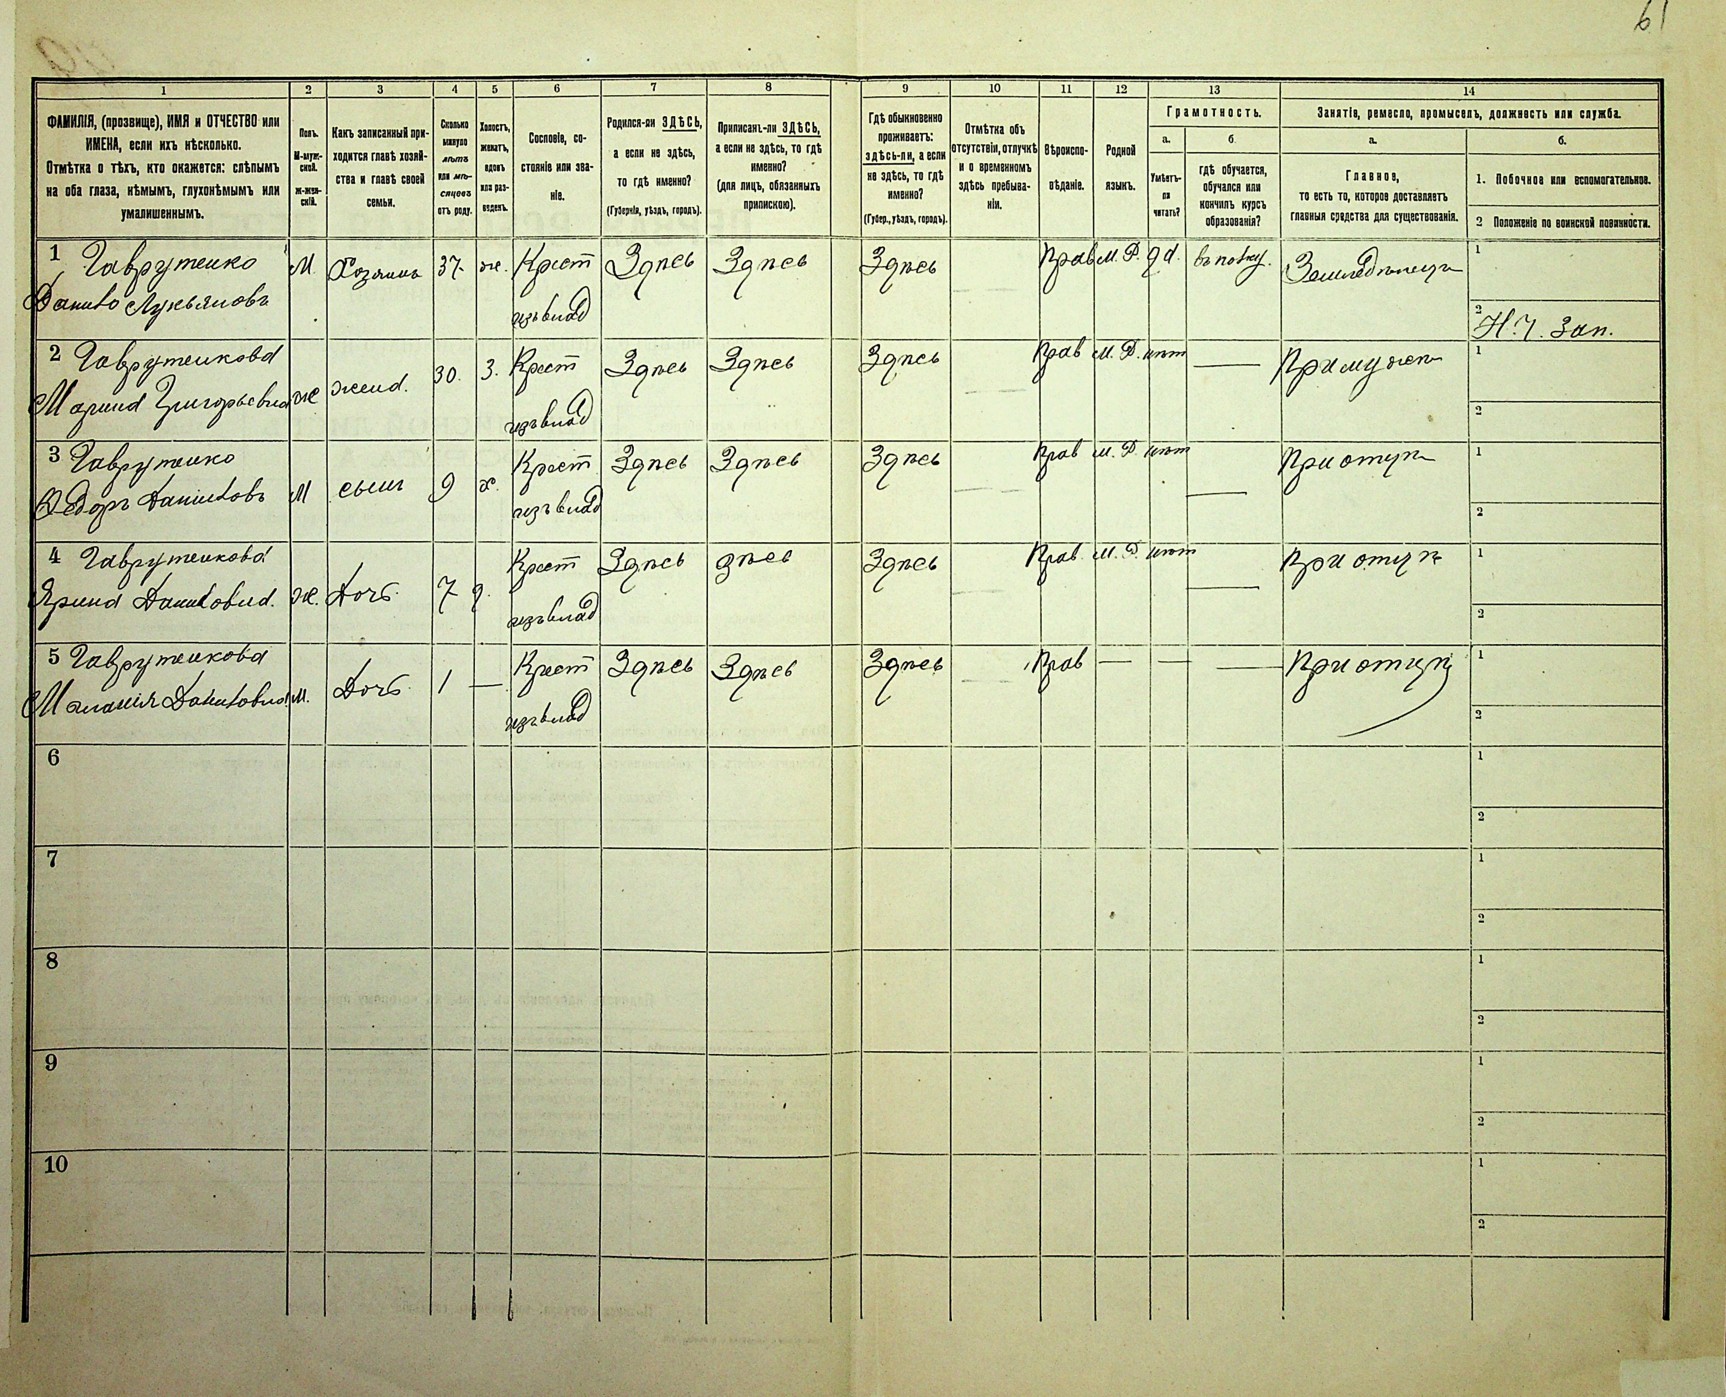 61
1
2
3
4
5
6
7
8
9
10
11
12
13
14
ФАМИЛІЯ, (прозвище), ИМЯ и ОТЧЕСТВО или
ИМЕНА, если ихъ нѣсколько.
Отмѣтка о тѣхъ, кто окажется: слѣпымъ
на оба глаза, нѣмымъ, глухонѣмымъ или
умалишеннымъ.
Полъ.
М-муж-
ской.
ж-жен-
скій.
Какъ записанный при-
ходится главѣ хозяй-
ства и главѣ своей
семьи.
Сколько
минуло
лѣтъ
или мѣ-
сяцевъ
отъ роду.
Холостъ,
женатъ,
вдовъ
или раз-
веденъ.
Сословіе, со-
стояніе или зва-
ніе.
Родился-ли ЗДѢСЬ,
а если не здѣсь,
то гдѣ именно?
(Губернія, уѣздъ, городъ).
Приписанъ-ли ЗДѢСЬ,
а если не здѣсь, то гдѣ
именно?
(для лицъ, обязанныхъ
припискою).
Гдѣ обыкновенно
проживаетъ:
здѣсь-ли, а если
не здѣсь, то гдѣ
именно?
(Губер., уѣздъ, городъ).
Отмѣтка объ
отсутствіи, отлучкѣ
и о временномъ
здѣсь пребыва-
ніи.
Вѣроиспо-
вѣданіе.
Родной
языкъ.
Грамотность.
а.
б.
Умѣетъ-
ли
читать?
гдѣ обучается,
обучался или
кончилъ курсъ
образованія?
Занятіе, ремесло, промыселъ, должность или служба.
а.
б.
Главное,
то есть то, которое доставляетъ
главныя средства для существованія.
1. Побочное или вспомогательное.
2 Положеніе по воинской повинности.
1 Гаврутенко
Данило Лукьяновъ
М
Хозяинъ
37
же.
Крест
изъ влад
Здѣсь
Здѣсь
Здѣсь
Прав
М. Р.
да.
въ полку.
Земледѣлецъ
1
2
Н. Ч. Зап.
2 Гаврутенкова
Марина Григорьевна
же
жена.
30.
З.
Крест
изъ влад
Здѣсь
Здѣсь
Здѣсь
Прав
М. Р.
нѣт
При муже
1
2
3 Гаврутенко
Ѳедоръ Даниловъ
М
сынъ
9
х.
Крест
изъ влад
Здѣсь
Здѣсь
Здѣсь
Прав
М. Р.
нѣт
При отцѣ
1
2
4 Гаврутенкова
Ярина Даниловна.
же.
Дочь.
7
д.
Крест
изъ влад
Здѣсь
здѣсь
Здѣсь
Прав.
М. Р.
нѣт
При отцѣ
1
2
5 Гаврутенкова
Маланія Даниловна
М.
Дочь.
1
—
Крест
изъ влад
Здѣсь
Здѣсь
Здѣсь
Прав
—
—
При отцѣ
1
2
6
1
2
7
1
2
8
1
2
9
1
2
10
1
2